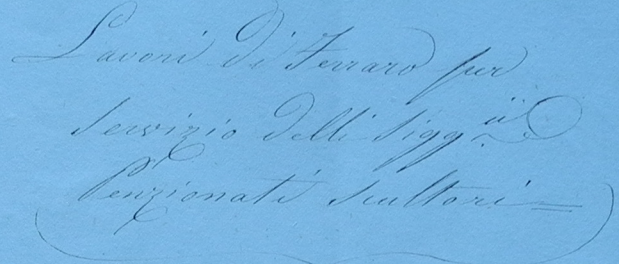 Lavori di Ferraro per
servizio delli Sigg.ii
Penzionati scultori =